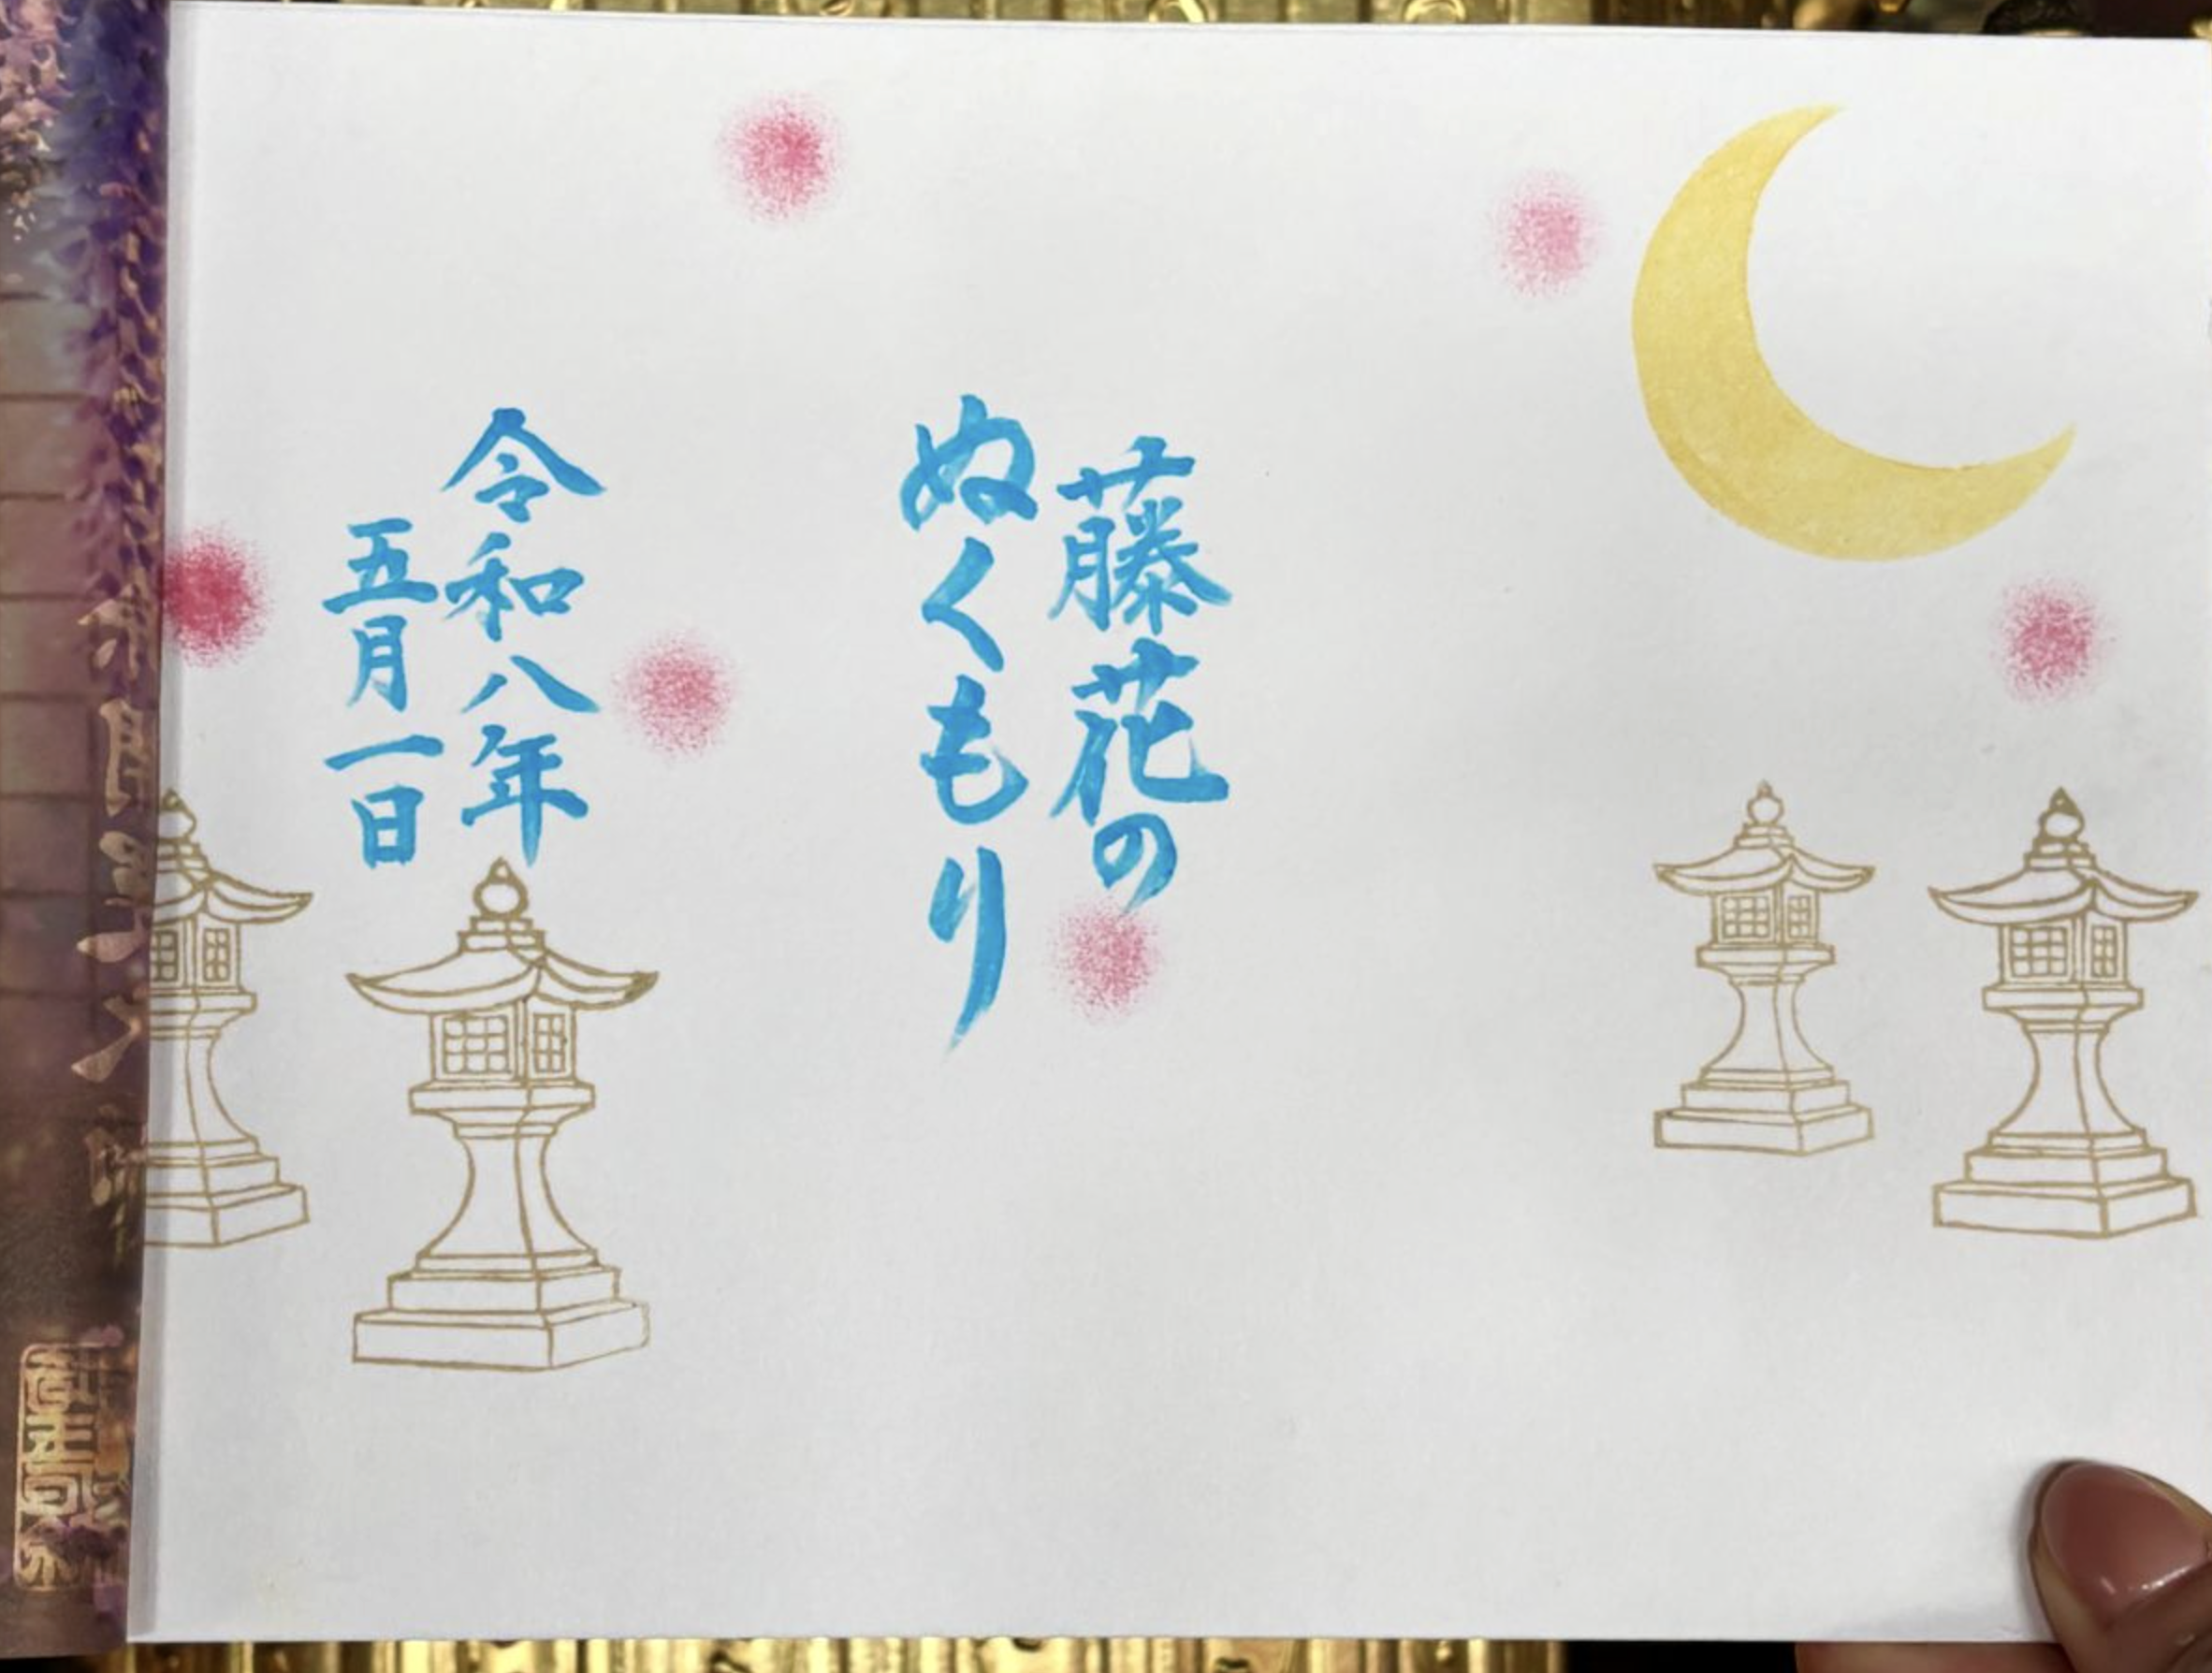 藤花の
ぬくもり
令和八年
五月一日